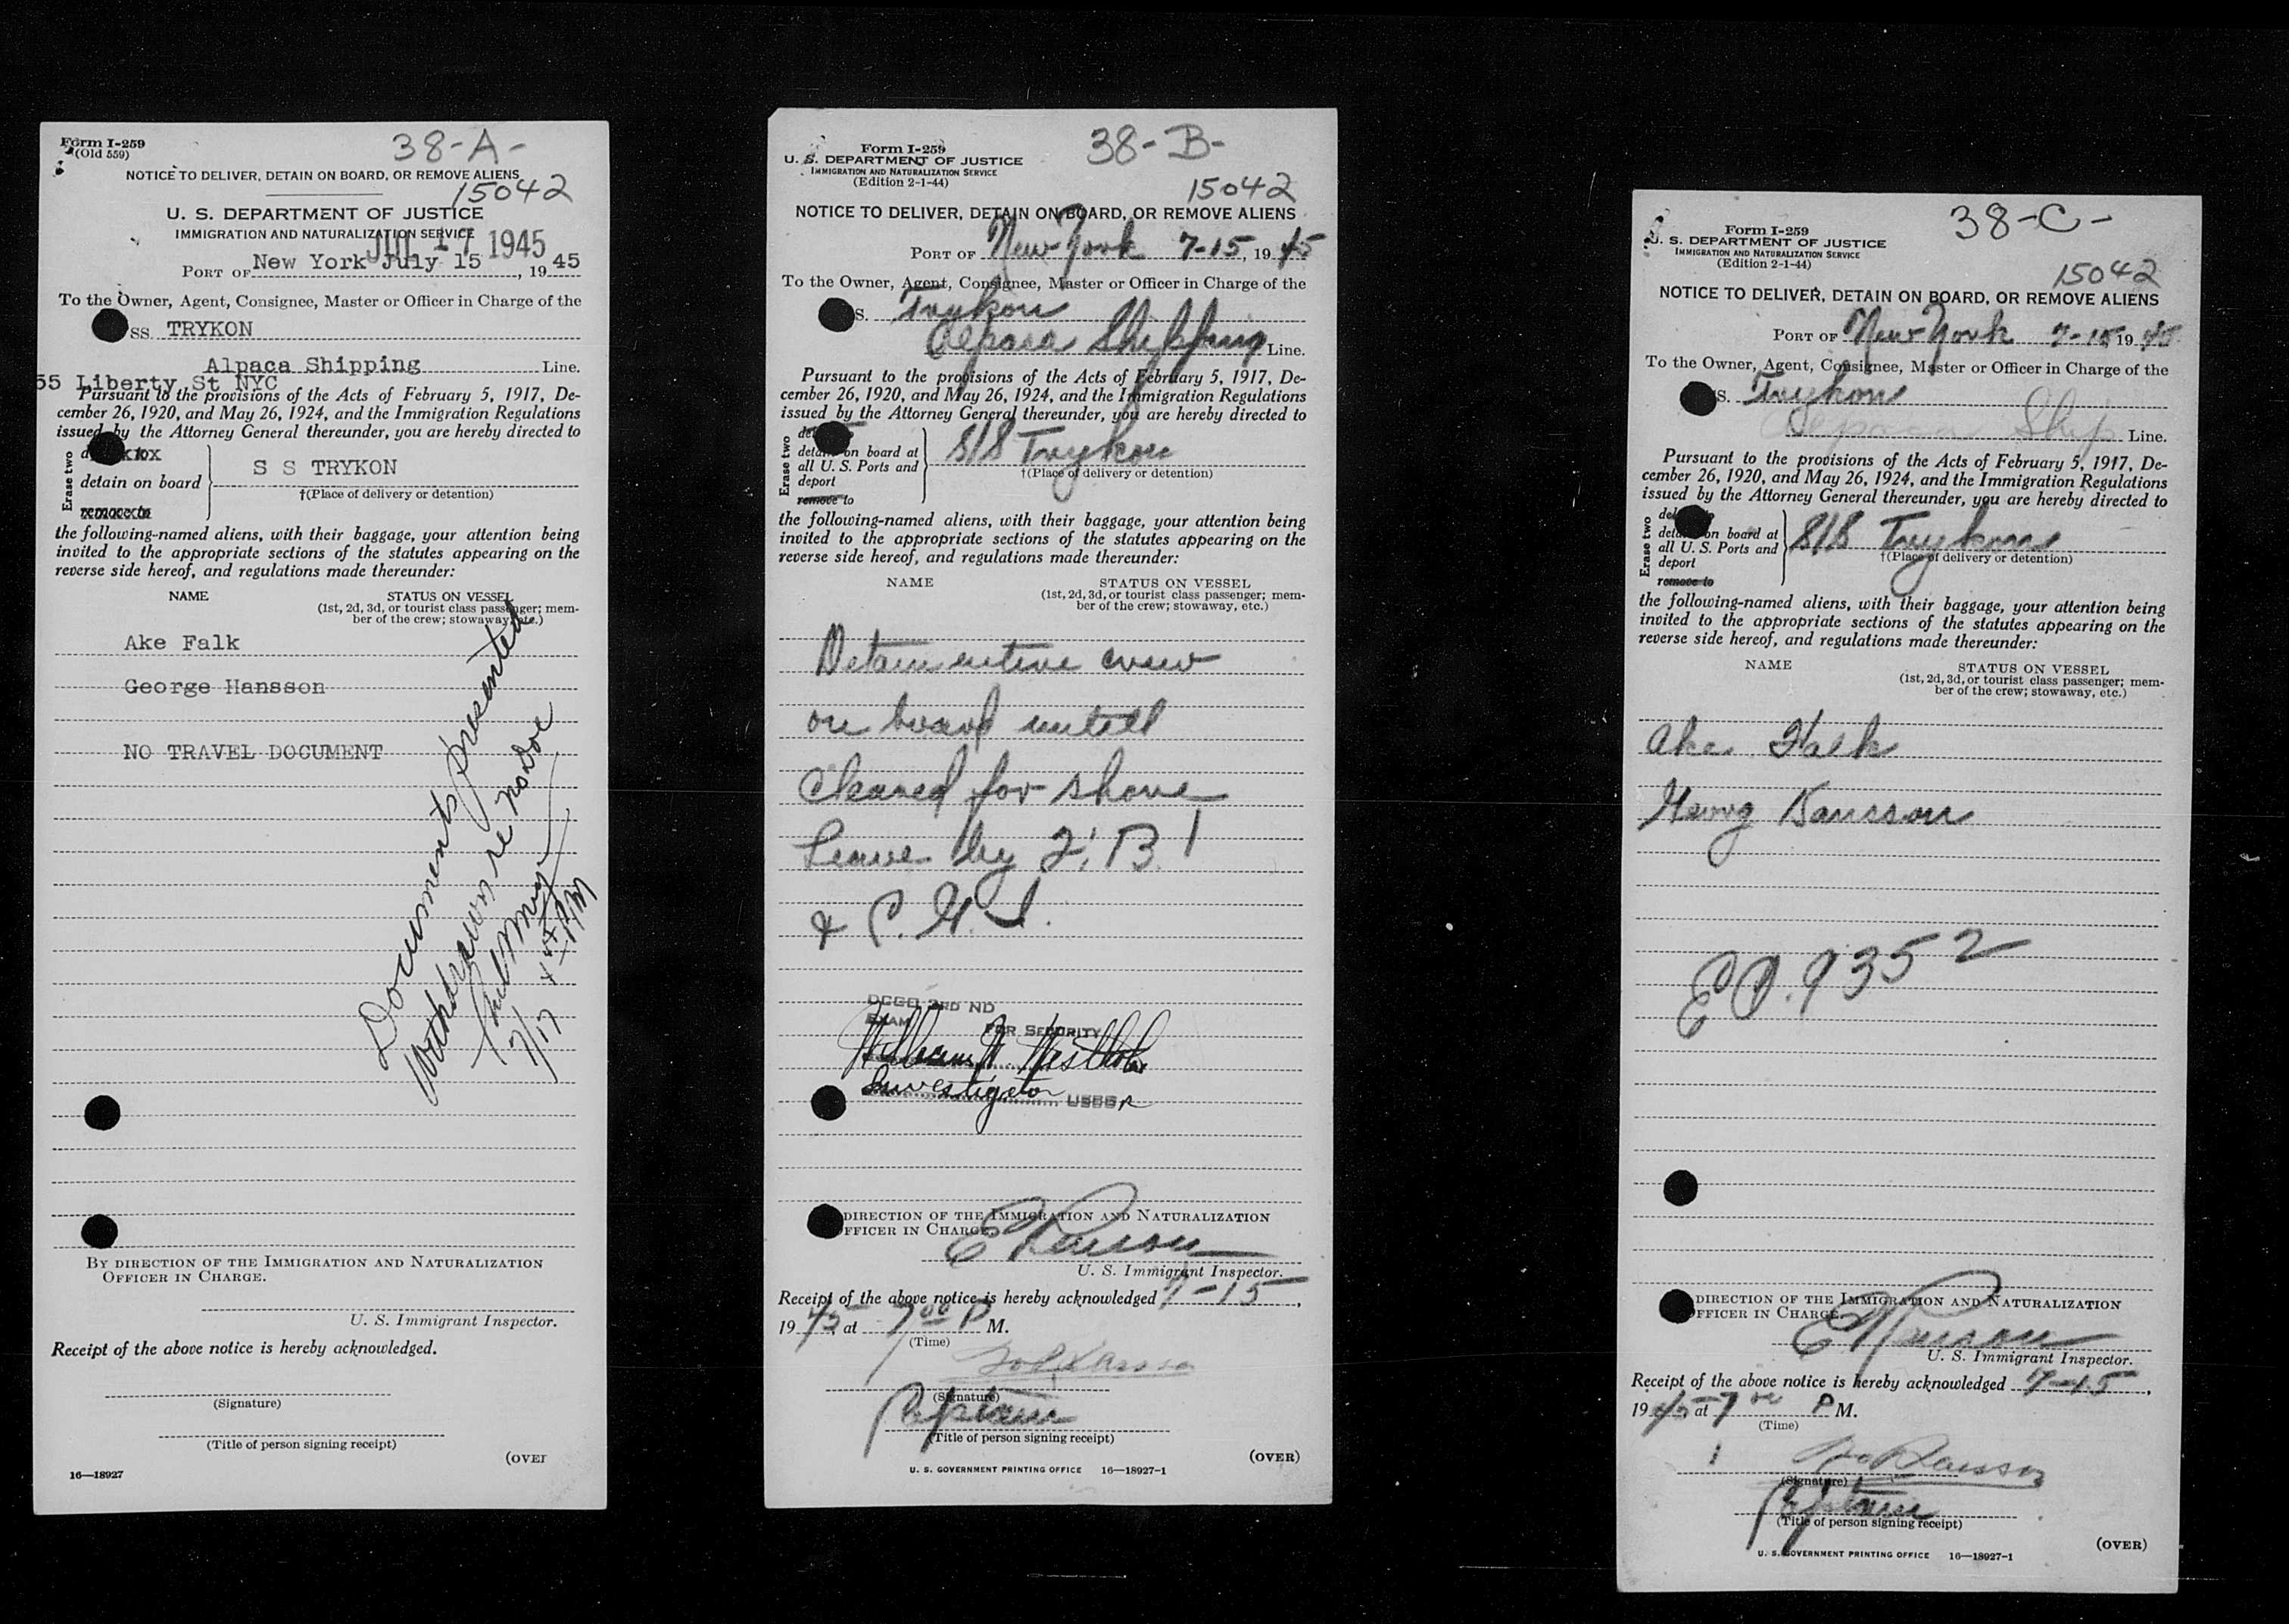 Form I-259
(Old 559)
38-A-
NOTICE TO DELIVER, DETAIN ON BOARD, OR REMOVE ALIENS
15042
U. S. DEPARTMENT OF JUSTICE
IMMIGRATION AND NATURALIZATION SERVICE
JUL 17 1945
PORT OF New York July 15, 1945
To the Owner, Agent, Consignee, Master or Officer in Charge of the
SS. TRYKON
Alpaca Shipping Line.
55 Liberty St NYC
Pursuant to the provisions of the Acts of February 5, 1917, De-
cember 26, 1920, and May 26, 1924, and the Immigration Regulations
issued by the Attorney General thereunder, you are hereby directed to
Erase two
detain on board
S S TRYKON
†(Place of delivery or detention)
remove to
the following-named aliens, with their baggage, your attention being
invited to the appropriate sections of the statutes appearing on the
reverse side hereof, and regulations made thereunder:
NAME STATUS ON VESSEL
(1st, 2d, 3d, or tourist class passenger; mem-
ber of the crew; stowaway, etc.)
Ake Falk
George Hansson
NO TRAVEL DOCUMENT
Documents presented
Withdrawn re no Doc
7/17
BY DIRECTION OF THE IMMIGRATION AND NATURALIZATION
OFFICER IN CHARGE.
U. S. Immigrant Inspector.
Receipt of the above notice is hereby acknowledged.
(Signature)
(Title of person signing receipt)
(OVER
16—18927
Form I-259
38-B-
U. S. DEPARTMENT OF JUSTICE
IMMIGRATION AND NATURALIZATION SERVICE
(Edition 2-1-44)
15042
NOTICE TO DELIVER, DETAIN ON BOARD, OR REMOVE ALIENS
PORT OF New York 7-15, 1945
To the Owner, Agent, Consignee, Master or Officer in Charge of the
S. Trykon
Alpaca Shipping Line.
Pursuant to the provisions of the Acts of February 5, 1917, De-
cember 26, 1920, and May 26, 1924, and the Immigration Regulations
issued by the Attorney General thereunder, you are hereby directed to
Erase two
detain on board at
all U. S. Ports and
deport
remove to
S/S Trykon
†(Place of delivery or detention)
the following-named aliens, with their baggage, your attention being
invited to the appropriate sections of the statutes appearing on the
reverse side hereof, and regulations made thereunder:
NAME STATUS ON VESSEL
(1st, 2d, 3d, or tourist class passenger; mem-
ber of the crew; stowaway, etc.)
Detain entire crew
on board untill
cleared for shore
Leave by
& C.G.I.
3RD ND
EXAM FOR SECURITY
William
Investigator USCGR
DIRECTION OF THE IMMIGRATION AND NATURALIZATION
OFFICER IN CHARGE.
U. S. Immigrant Inspector.
Receipt of the above notice is hereby acknowledged 7-15,
1945 at 7 00 P M.
(Time)
(Signature)
Captain
(Title of person signing receipt)
(OVER)
U. S. GOVERNMENT PRINTING OFFICE 16—18927-1
Form I-259
38-C-
U. S. DEPARTMENT OF JUSTICE
IMMIGRATION AND NATURALIZATION SERVICE
(Edition 2-1-44)
15042
NOTICE TO DELIVER, DETAIN ON BOARD, OR REMOVE ALIENS
PORT OF New York 7-15 1945
To the Owner, Agent, Consignee, Master or Officer in Charge of the
S. Trykon
Alpaca Ship Line.
Pursuant to the provisions of the Acts of February 5, 1917, De-
cember 26, 1920, and May 26, 1924, and the Immigration Regulations
issued by the Attorney General thereunder, you are hereby directed to
Erase two
detain on board at
all U. S. Ports and
deport
remove to
S/S Trykon
†(Place of delivery or detention)
the following-named aliens, with their baggage, your attention being
invited to the appropriate sections of the statutes appearing on the
reverse side hereof, and regulations made thereunder:
NAME STATUS ON VESSEL
(1st, 2d, 3d, or tourist class passenger; mem-
ber of the crew; stowaway, etc.)
Ake Falk
Georg Hansson
EO. 9352
DIRECTION OF THE IMMIGRATION AND NATURALIZATION
OFFICER IN CHARGE.
U. S. Immigrant Inspector.
Receipt of the above notice is hereby acknowledged 7-15,
1945 at 7 00 P M.
(Time)
(Signature)
Captain
(Title of person signing receipt)
(OVER)
U. S. GOVERNMENT PRINTING OFFICE 16—18927-1